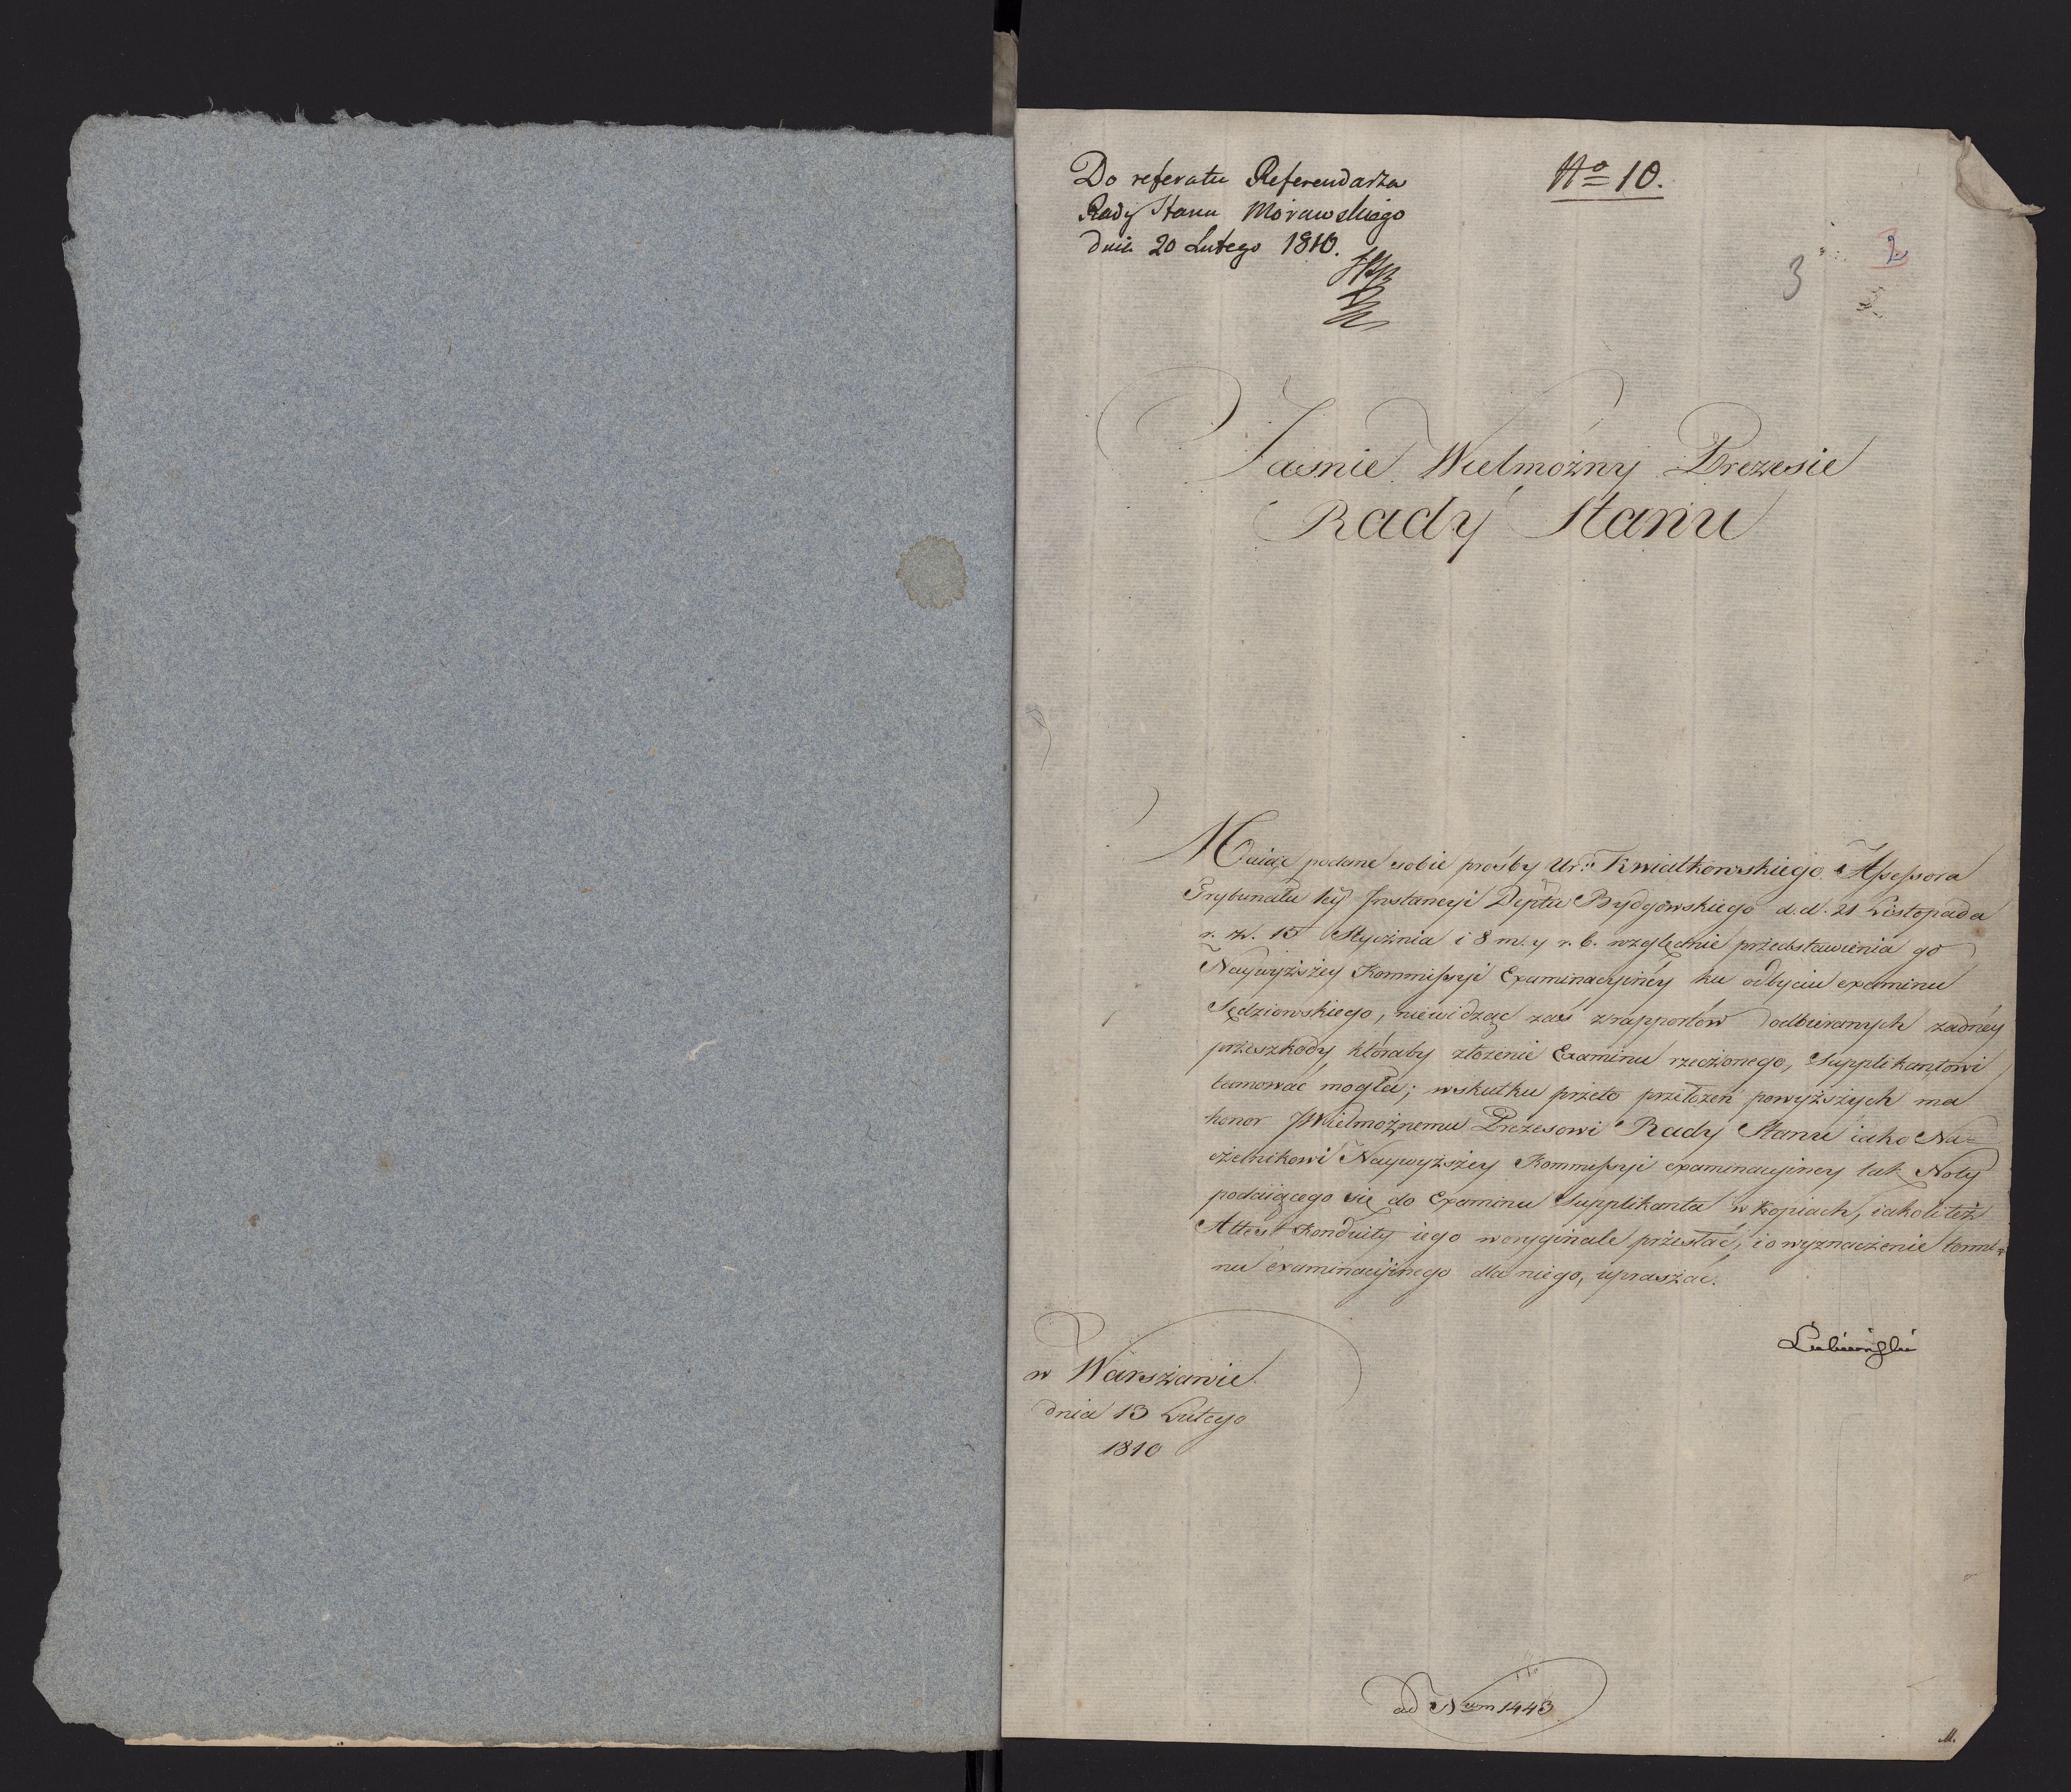 Do referatu Referendarza
Rady Stanu Morawskiego
dnia 20 Lutego 1810.
No 10.
3
2
Jaśnie Wielmożny Prezesie
Rady Stanu
Maiąc podane sobie prośby Ur: Kwiatkowskiego Assessora
Trybunału 1ey Instancyi Depttu Bydgowskiego d.d. 21 Listopada
r. z. 15 Stycznia i 8 m. y r. b. względnie przedstawienia go
Naywyższey Kommissyi Examinacyiney ku odbyciu examinu
Sędziowskiego, niewidząc zaś z rapportow odbieranych żadney
przeszkody, któraby złożenie Examinu rzeczonego, Supplikantowi
tamować mogła; w skutku przeto przełożeń powyższych ma
honor JWielmożnemu Prezesowi Rady Stanu iako Na=
czelnikowi Naywyższey Kommissyi examinacyiney tak Noty
podaiącego się do Examinu Supplikanta w kopiach, iakoli też
Attest Konduity iego w oryginale przesłać, i o wyznaczenie termi=
nu examinacyinego dla niego, upraszać.
Łubieński
w Warszawie
dnia 13 Lutego
1810
ad Num 1443
M.